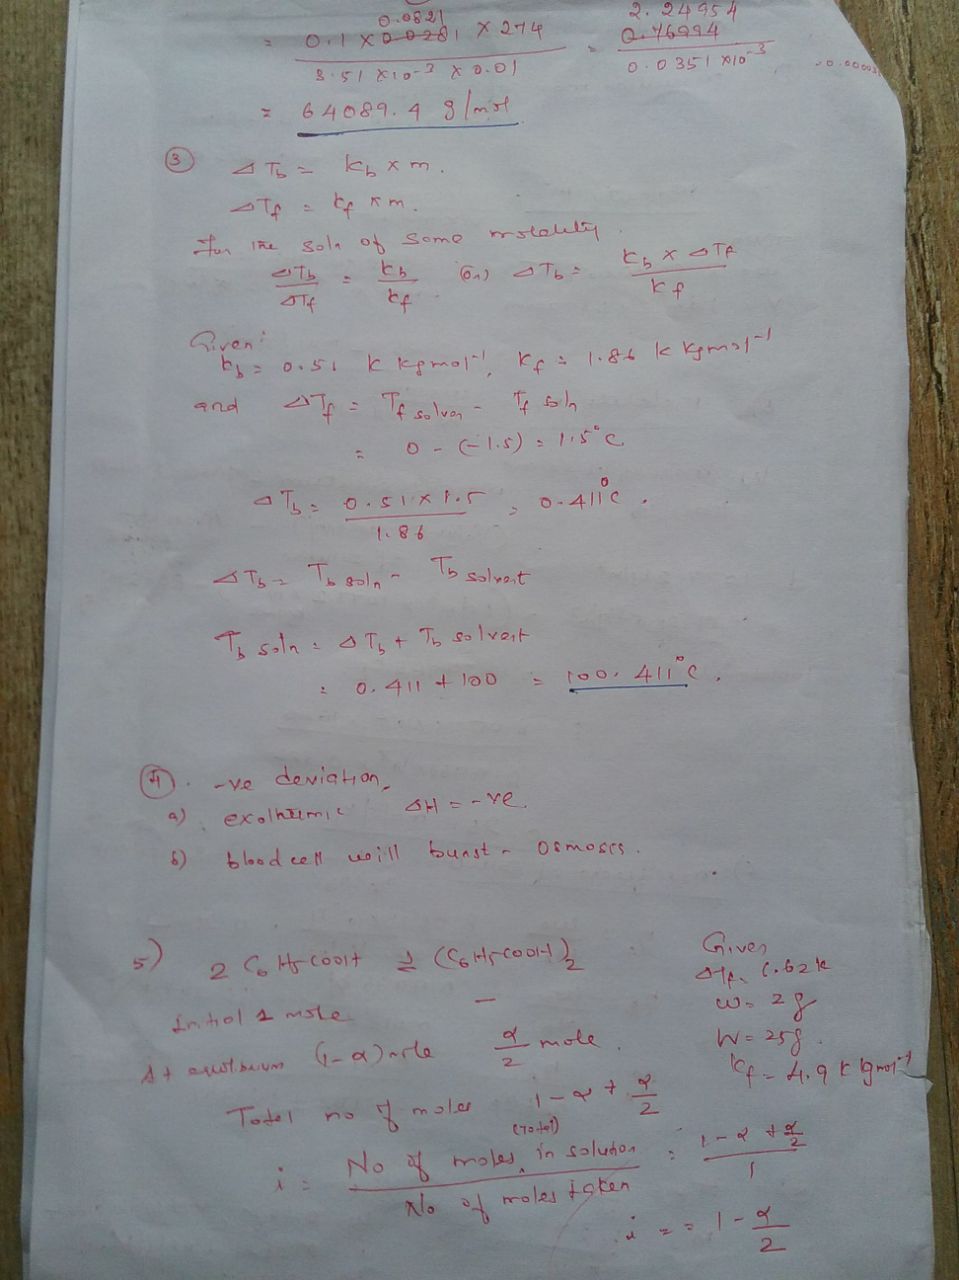 0.0821
= 0.1 × 0.0281 × 274 / 3.51 × 10⁻³ × 0.01 = 2.24954 0.76994 / 0.0351 × 10⁻³
= 64089.4 g/mol
③ ΔTb = kb × m.
ΔTf = kf × m.
For the soln of same molality
ΔTb/ΔTf = kb/kf (or) ΔTb = kb × ΔTf / kf
Given:
kb = 0.51 k kgmol⁻¹, kf = 1.86 k kgmol⁻¹
and ΔTf = Tf solven - Tf soln
= 0 - (-1.5) = 1.5°C
ΔTb = 0.51 × 1.5 / 1.86 = 0.411°C.
ΔTb = Tb soln - Tb solvent
Tb soln = ΔTb + Tb solvent
= 0.411 + 100 = 100.411°C.
④. -ve deviation.
a) exothermic ΔH = -ve.
b) blood cell will burst - Osmosis.
5) 2 C₆H₅COOH ⇌ (C₆H₅COOH)₂
Given
ΔTf = 1.62k
Initial 1 mole —
w = 2g
At equilibrium (1-α) mole α/2 mole.
W = 25g.
kf = 4.9 k kgmol⁻¹
Total no of moles 1 - α + α/2
i = No of moles (total) in solution / No of moles taken = 1 - α + α/2 / 1
i = = 1 - α/2